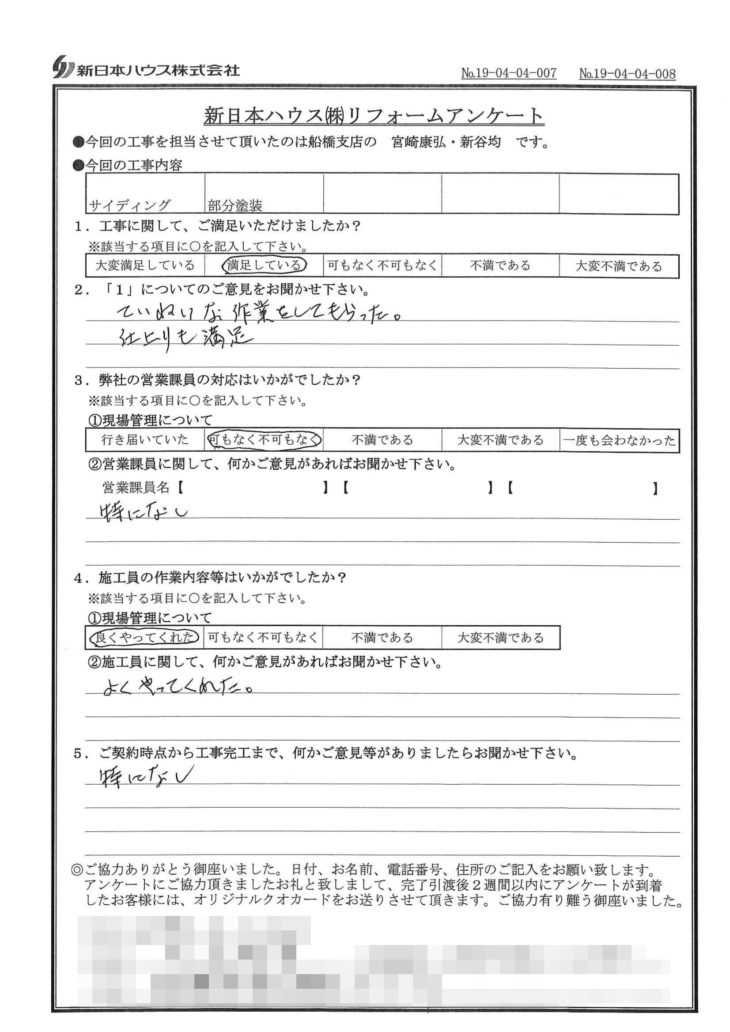 新日本ハウス株式会社 №19-04-04-007 №19-04-04-008
新日本ハウス㈱リフォームアンケート
●今回の工事を担当させて頂いたのは船橋支店の 宮崎康弘・新谷均 です。
●今回の工事内容
サイディング 部分塗装
1．工事に関して、ご満足いただけましたか？
※該当する項目に○を記入して下さい。
大変満足している 満足している 可もなく不可もなく 不満である 大変不満である
2．「1」についてのご意見をお聞かせ下さい。
ていねいな作業をしてもらった。
仕上りも満足
3．弊社の営業課員の対応はいかがでしたか？
※該当する項目に○を記入して下さい。
①現場管理について
行き届いていた 可もなく不可もなく 不満である 大変不満である 一度も会わなかった
②営業課員に関して、何かご意見があればお聞かせ下さい。
営業課員名【 】【 】【 】
特になし
4．施工員の作業内容等はいかがでしたか？
※該当する項目に○を記入して下さい。
①現場管理について
良くやってくれた 可もなく不可もなく 不満である 大変不満である
②施工員に関して、何かご意見があればお聞かせ下さい。
よくやってくれた。
5．ご契約時点から工事完工まで、何かご意見等がありましたらお聞かせ下さい。
特になし
◎ご協力ありがとう御座いました。日付、お名前、電話番号、住所のご記入をお願い致します。
アンケートにご協力頂きましたお礼と致しまして、完了引渡後2週間以内にアンケートが到着
したお客様には、オリジナルクオカードをお送りさせて頂きます。ご協力有り難う御座いました。